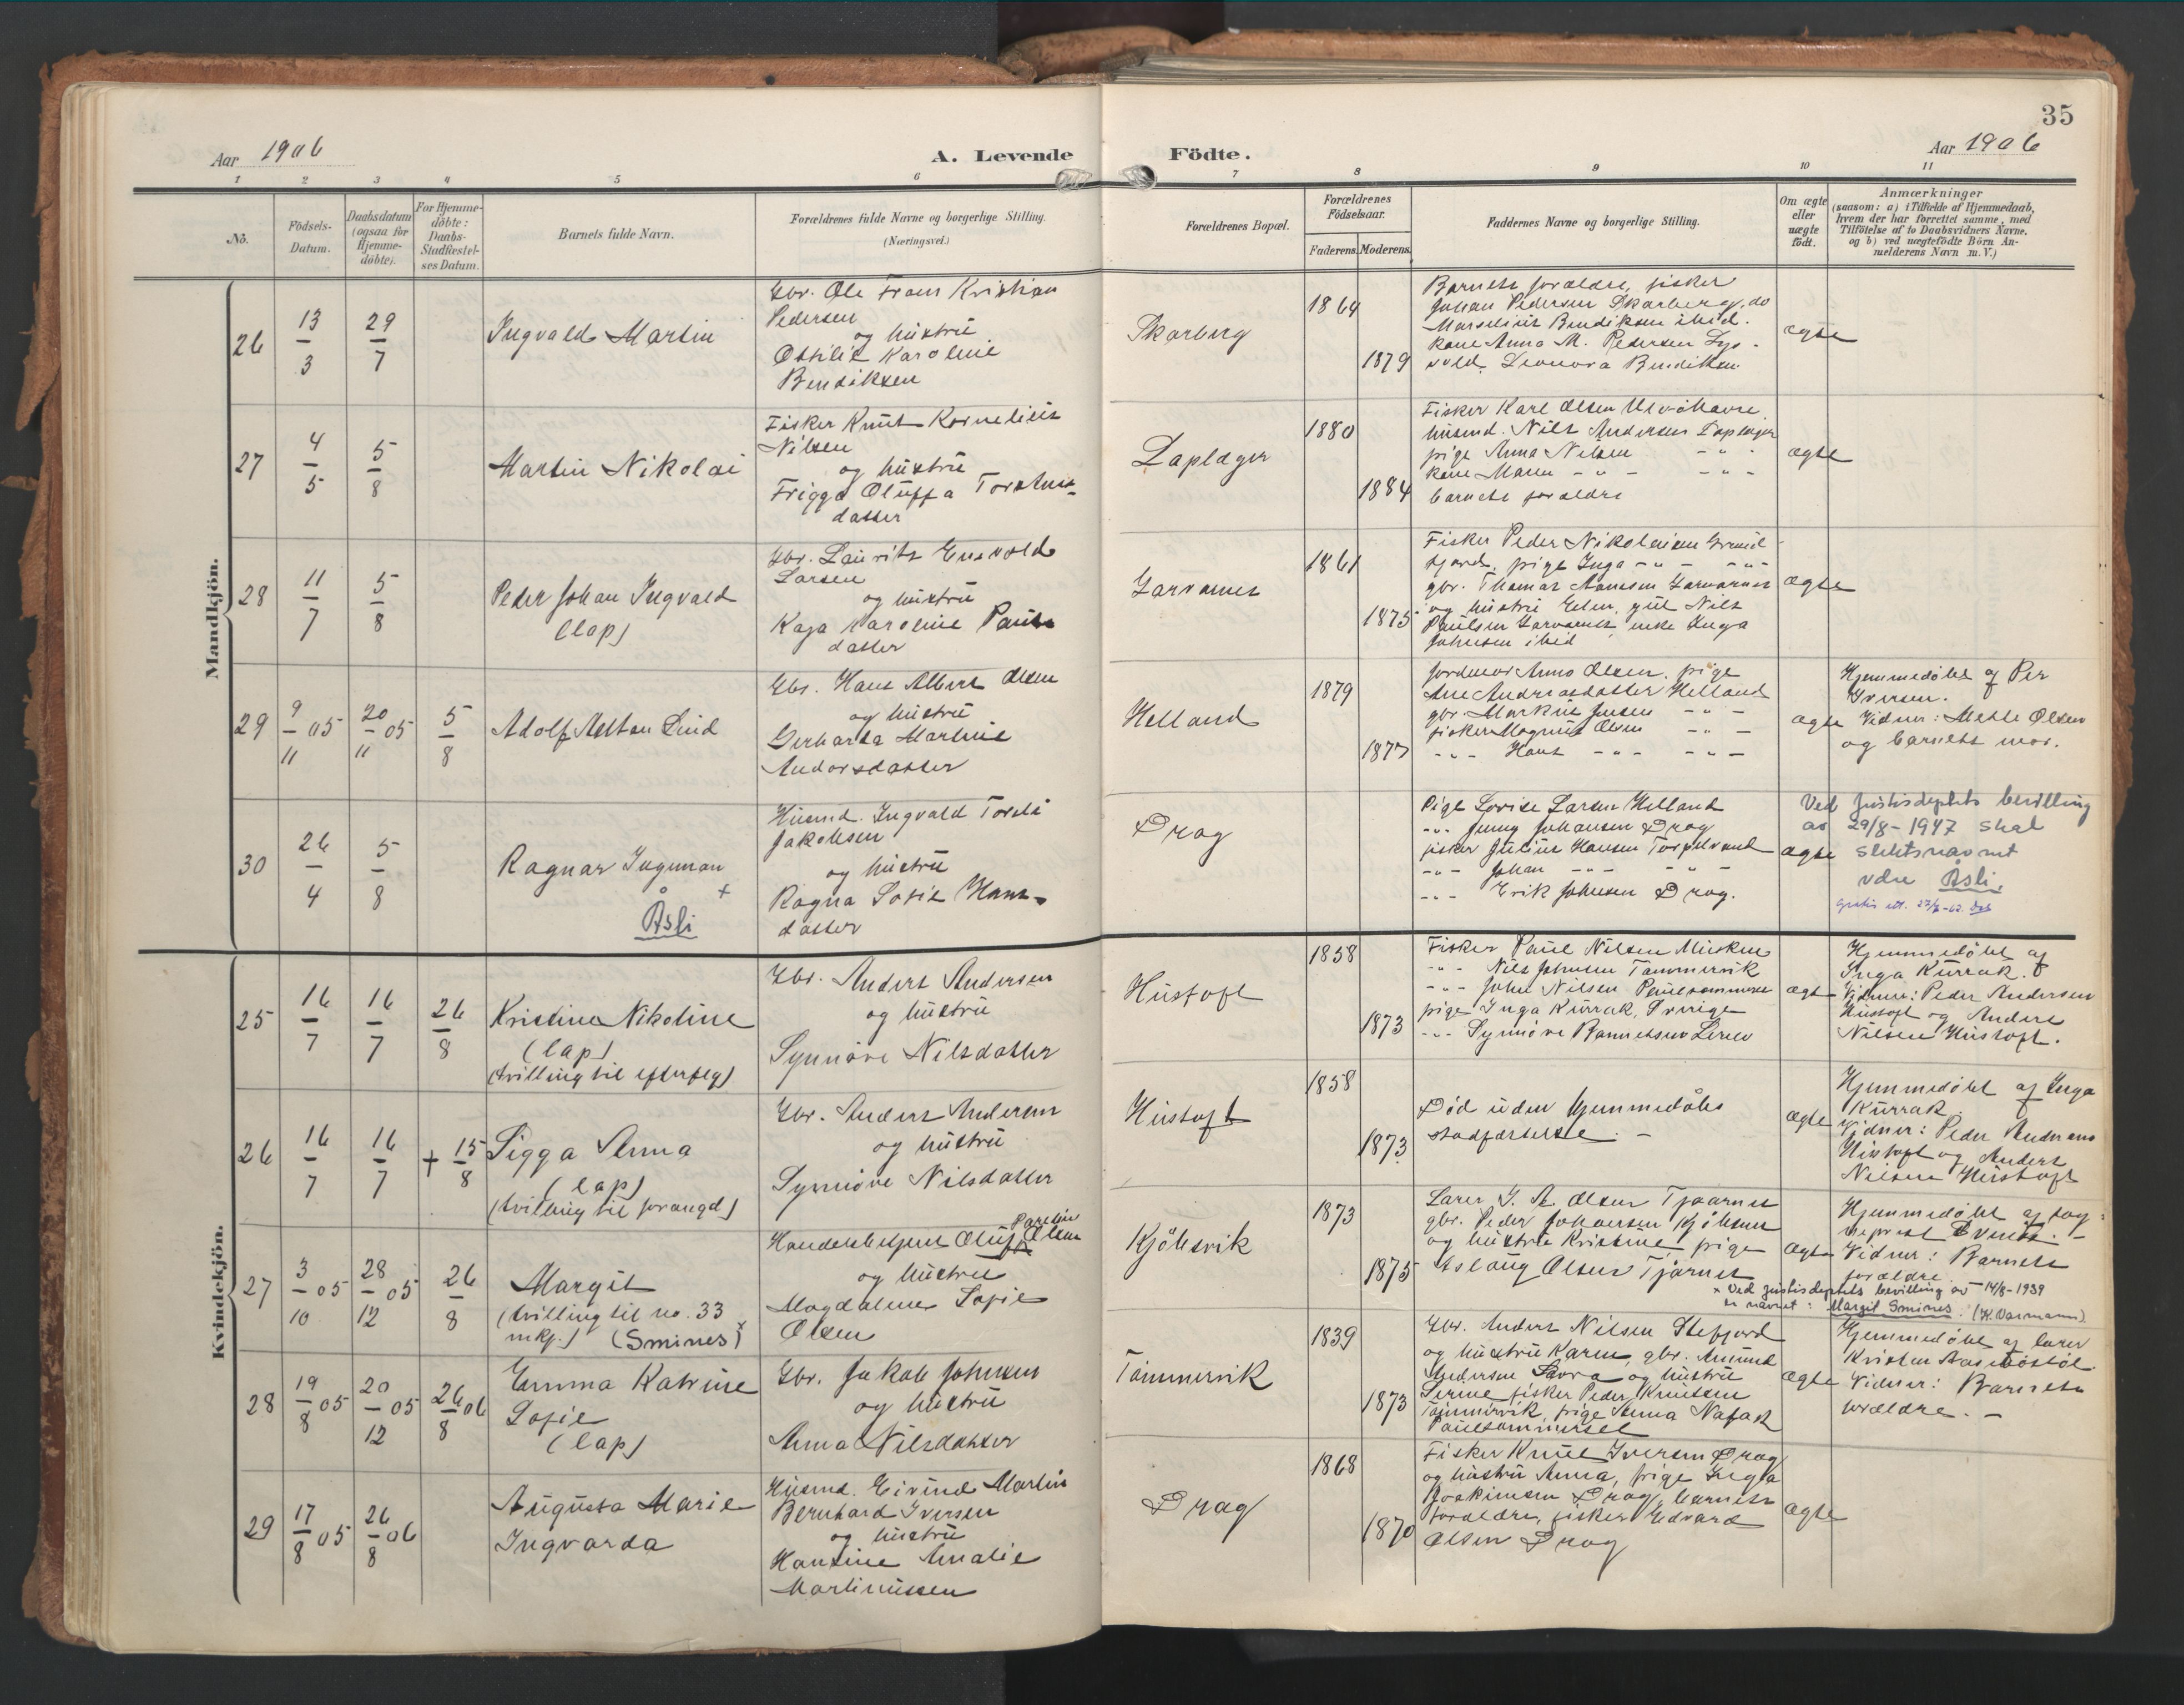 35
Aar 1906
A. Levende Födte.
Aar 1906
1 2 3 4 5 6 7 8 9 10 11
No.
Födsels-
Datum.
Daabsdatum
(ogsaa for
Hjemme-
döbte).
For Hjemme-
döbte:
Daabs-
Stadfæstel-
ses Datum.
Barnets fulde Navn.
Forældrenes fulde Navne og borgerlige Stilling.
(Næringsvei.)
Forældrenes Bopæl.
Forældrenes
Födselsaar.
Faderens. Moderens.
Faddernes Navne og borgerlige Stilling.
Om ægte
eller
uægte
födt.
Anmærkninger
(saasom: a) i Tilfælde af Hjemmedaab,
hvem der har forrettet samme, med
Tilföielse af to Daabsvidners Navne,
og b) ved uægtefödte Börn An-
melderens Navn m.V.)
Mandkjön.
26
13/3
29/7
Ingvald Martin
Gbr. Ole Frans Kristian
Pedersen
og hustru
Ottilie Karoline
Bendiksen
Skarberg
1864
1879
Barnets forældre, fisker
Johan Pedersen Skarberg, do
Marselius Bendiksen ibid.
kone Anna M. Pedersen
Leonora Bendiksen
ægte
27
4/5
5/8
Martin Nikolai
Fisker Knut Kornelius
Nilsen
og hustru
Frigga Oluffa Torstens-
datter
Laplæger
1880
1884
Fisker Karl Olsen
husmd. Nils Andersen Laplæger
pige Anna Nilsen - " -
kone Maren - " - - " -
barnets forældre
ægte
28
11/7
5/8
Peder Johan Ingvald
(lap)
Gbr. Laurits Enevold
Larsen
og hustru
Kaja Karoline Pauls
datter
Sarvanes
1861
1875
Fisker Peder Nikolaisen Grund
fjord, pige Inga - " - - " -
gbr. Thomas Aanesen Sarvanes
og hustru Elen, gut Nils
Paulsen Sarvanes, enke Inga
Johnsen ibid
ægte
29
9/11 05
20/11 05
5/8
Adolf Anton Lind
Gbr. Hans Albert Olsen
og hustru
Gerharda Martine
Andorsdatter
Helland
1879
1877
Jordmor Anna Olsen, pige
Ane Andreasdatter Helland
gbr. Markus Jensen - " -
fisker Magnus Olsen - " -
- " - Hans - " - - " -
ægte
Hjemmedöbt af Per
Iversen.
Vidner: Mette Olsen
og barnets mor.
30
26/4
5/8
Ragnar Ingeman
+
Åsli
Husmd. Ingvald Torleis
Jakobsen
og hustru
Ragna Sofie Hans-
datter
Drag
Pige Lovise Larsen Helland
- " - Jenny Johansen Drag
fisker Julius Hansen
- " - Johan - " - - " -
- " - Erik Johnsen Drag.
ægte
Ved Justisdeptets bevilling
av 29/8-1947 skal
slektsnavnet
være Åsli.
Kvindekjön.
25
16/7
16/7
26/8
Kristine Nikoline
(lap)
(tvilling til efterfølg)
Gbr. Anders Andersen
og hustru
Synnöve Nilsdatter
Hustoft
1858
1873
Fisker Paul Nilsen Musken
- " - Nils Johnsen Tömmervik
- " - John Nilsen
pige Inga Kurrak, Sverige
- " - Synnöve
ægte
Hjemmedöbt af
Inga Kurrak.
Vidner: Peder Andersen
Hustoft og Anders
Nilsen Hustoft.
26
16/7
16/7
+ 15/8
Sigga Anna
(lap)
(tvilling til forangd)
Gbr. Anders Andersen
og hustru
Synnöve Nilsdatter
Hustoft
1858
1873
Död uden hjemmedöbs
stadfæstelse. -
ægte
Hjemmedöbt af Inga
Kurrak.
Vidner: Peder Andersen
Hustoft og Anders
Nilsen Hustoft
27
3/10 05
28/12 05
26/8
Margit
(tvilling til no. 33
mkj.) (Smines) x
Handelsbetjent Oluf Parelius Olsen
og hustru
Magdalena Sofie
Olsen
Kjöbsvik
1873
1875
Lærer J. A. Olsen Tjaarnes
gbr. Peder Johansen Kjöbsnes
og hustru Kristine, pige
Aslaug Olsen Tjarnes
ægte
Hjemmedöbt af sog-
neprest Evensen. -
Vidner: Barnets
forældre.
x Ved Justisdeptets bevilling av 14/8-1939
er navnet: Margit Smines.
28
19/8 05
20/12 05
26/8 06
Emma Katrine
Sofie
(lap)
Gbr. Jakob Johnsen
og hustru
Anna Nilsdatter
Tömmervik
1839
1873
Gbr. Anders Nilsen Stefjord
og hustru Karen, gbr. Amund
Andersen Savra og hustru
Serine, fisker Peder Knutsen
Tömmervik, pige Anna
ægte
Hjemmedöbt af lærer
Kristen
Vidner: Barnets
forældre. -
29
17/8 05
26/8 06
Augusta Marie
Ingvarda
Husmd. Eivind Martin
Bernhard Iversen
og hustru
Hansine Amalie
Martinussen
Drag
1868
1870
Fisker Knut Iversen Drag
og hustru Anna, pige Inga
Joakimsen Drag, barnets
forældre, fisker Edvard
Olsen Drag
ægte